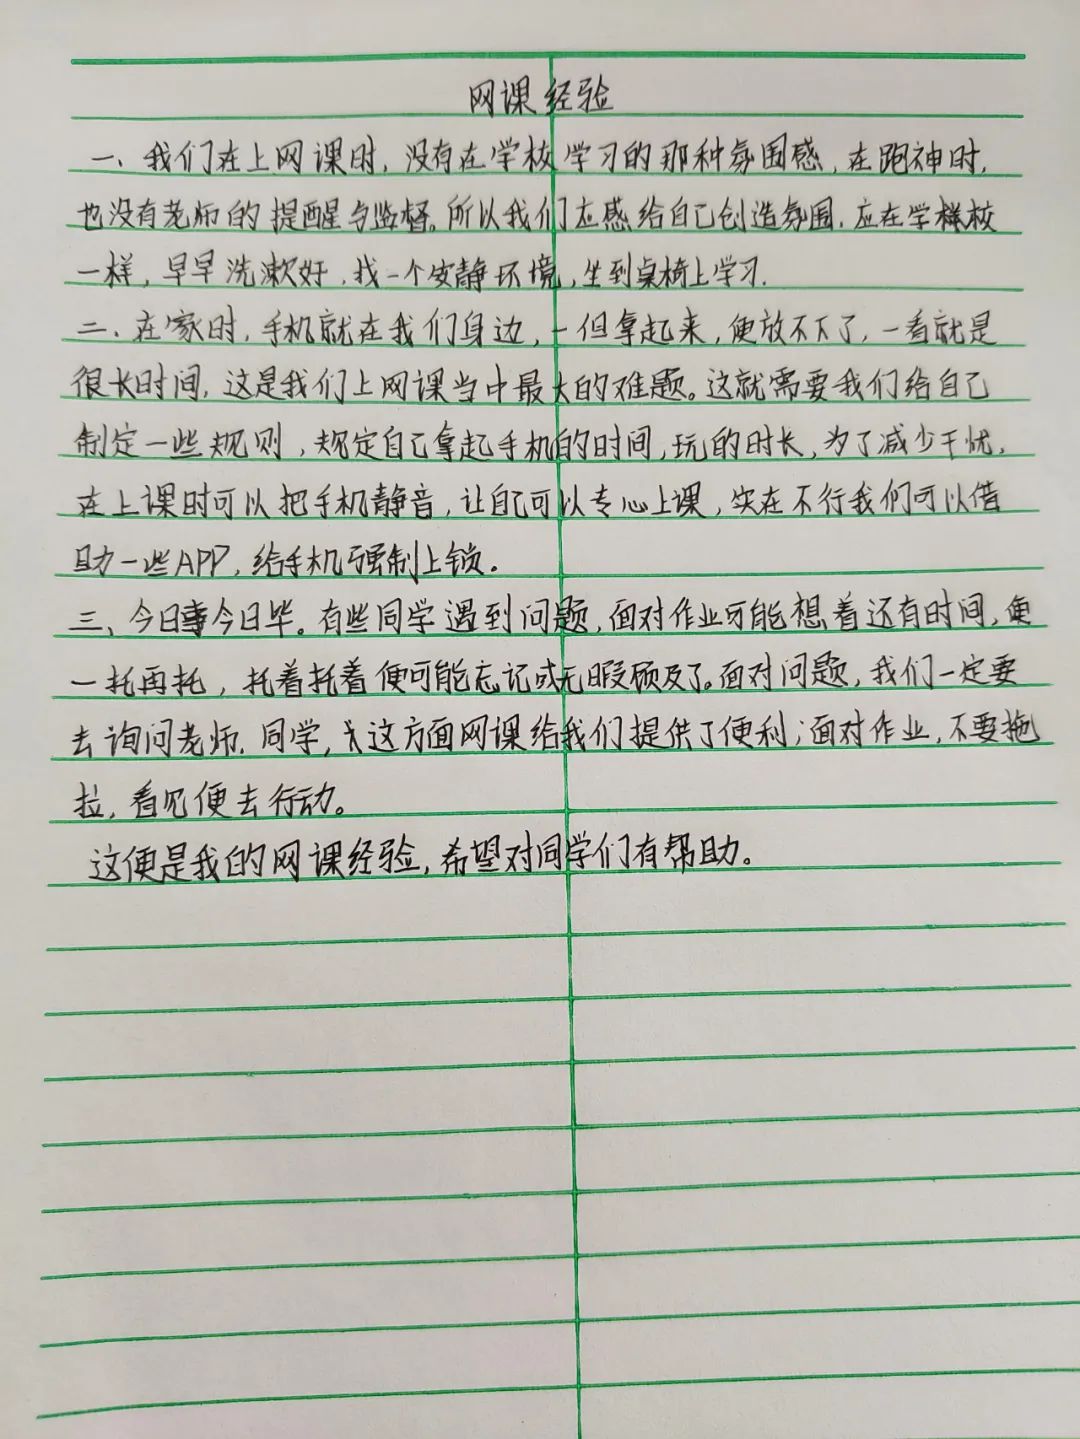 网课经验
一、我们在上网课时,没有在学校学习的那种氛围感,在跑神时,
也没有老师的提醒与监督。所以我们应感给自己创造氛围,应在学校
一样,早早洗漱好,找一个安静环境,坐到桌椅上学习.
二、在家时,手机就在我们身边,一但拿起来,便放不下了,一看就是
很长时间,这是我们上网课当中最大的难题。这就需要我们给自己
制定一些规则,规定自己拿起手机的时间,玩的时长,为了减少干忧,
在上课时可以把手机静音,让自己可以专心上课,实在不行我们可以借
助一些APP,给手机强制上锁。
三、今日事今日毕。有些同学遇到问题,面对作业可能想着还有时间,便
一托再托,托着托着便可能忘记或无暇顾及了。面对问题,我们一定要
去询问老师.同学,这方面网课给我们提供了便利;面对作业,不要拖
拉,看见便去行动。
这便是我的网课经验,希望对同学们有帮助。